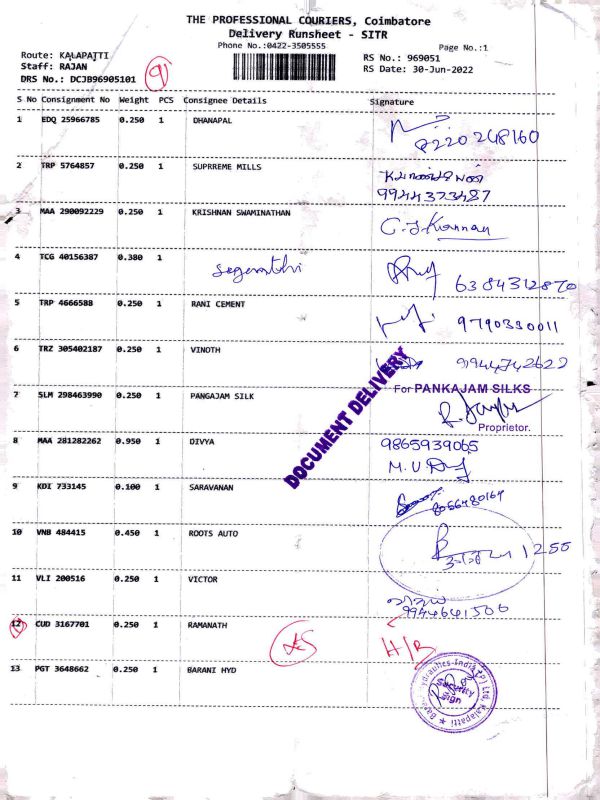 THE PROFESSIONAL COURIERS, Coimbatore
Delivery Runsheet - SITR
Phone No.:0422-3505555
Page No.:1
Route: KALAPATTI
Staff: RAJAN
DRS No.: DCJB96905101
RS No.: 969051
RS Date: 30-Jun-2022
S No Consignment No Weight PCS Consignee Details Signature
1 EDQ 25966785 0.250 1 DHANAPAL
8220248160
2 TRP 5764857 0.250 1 SUPRREME MILLS
9944373487
3 MAA 290092229 0.250 1 KRISHNAN SWAMINATHAN
4 TCG 40156387 0.380 1
6384312870
5 TRP 4666588 0.250 1 RANI CEMENT
9790330011
6 TRZ 305402187 0.250 1 VINOTH
9944742622
DOCUMENT DELIVERY
7 SLM 298463990 0.250 1 PANGAJAM SILK
For PANKAJAM SILKS
Proprietor.
8 MAA 281282262 0.950 1 DIVYA
9865939065
9 KDI 733145 0.100 1 SARAVANAN
8056480164
10 VNB 484415 0.450 1 ROOTS AUTO
1255
11 VLI 200516 0.250 1 VICTOR
9944641506
12 CUD 3167701 0.250 1 RAMANATH
H/B
13 PGT 3648662 0.250 1 BARANI HYD
Security
Sign